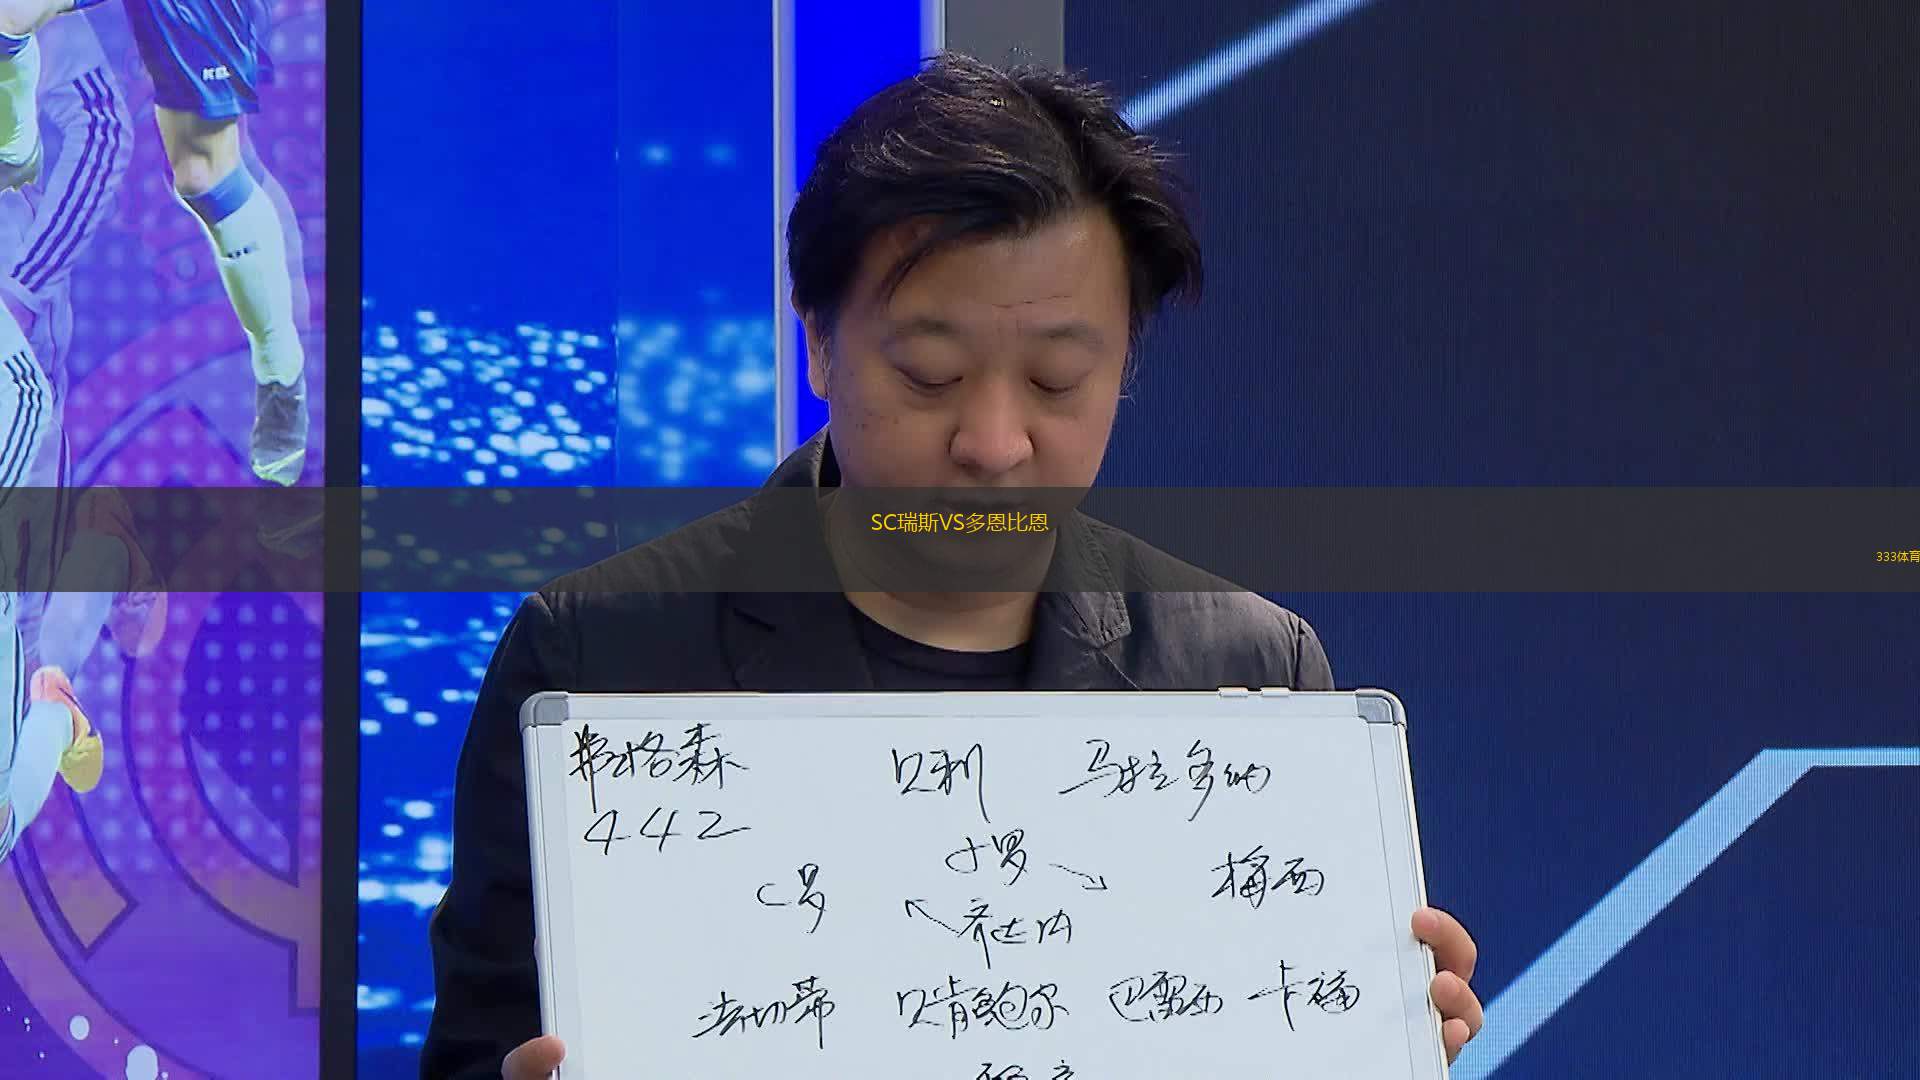 SC瑞斯VS多恩比恩
333体育
弗格森 贝利 马拉多纳
442
小罗
C罗 梅西
齐达内
法切蒂 贝肯鲍尔 巴雷西 卡福